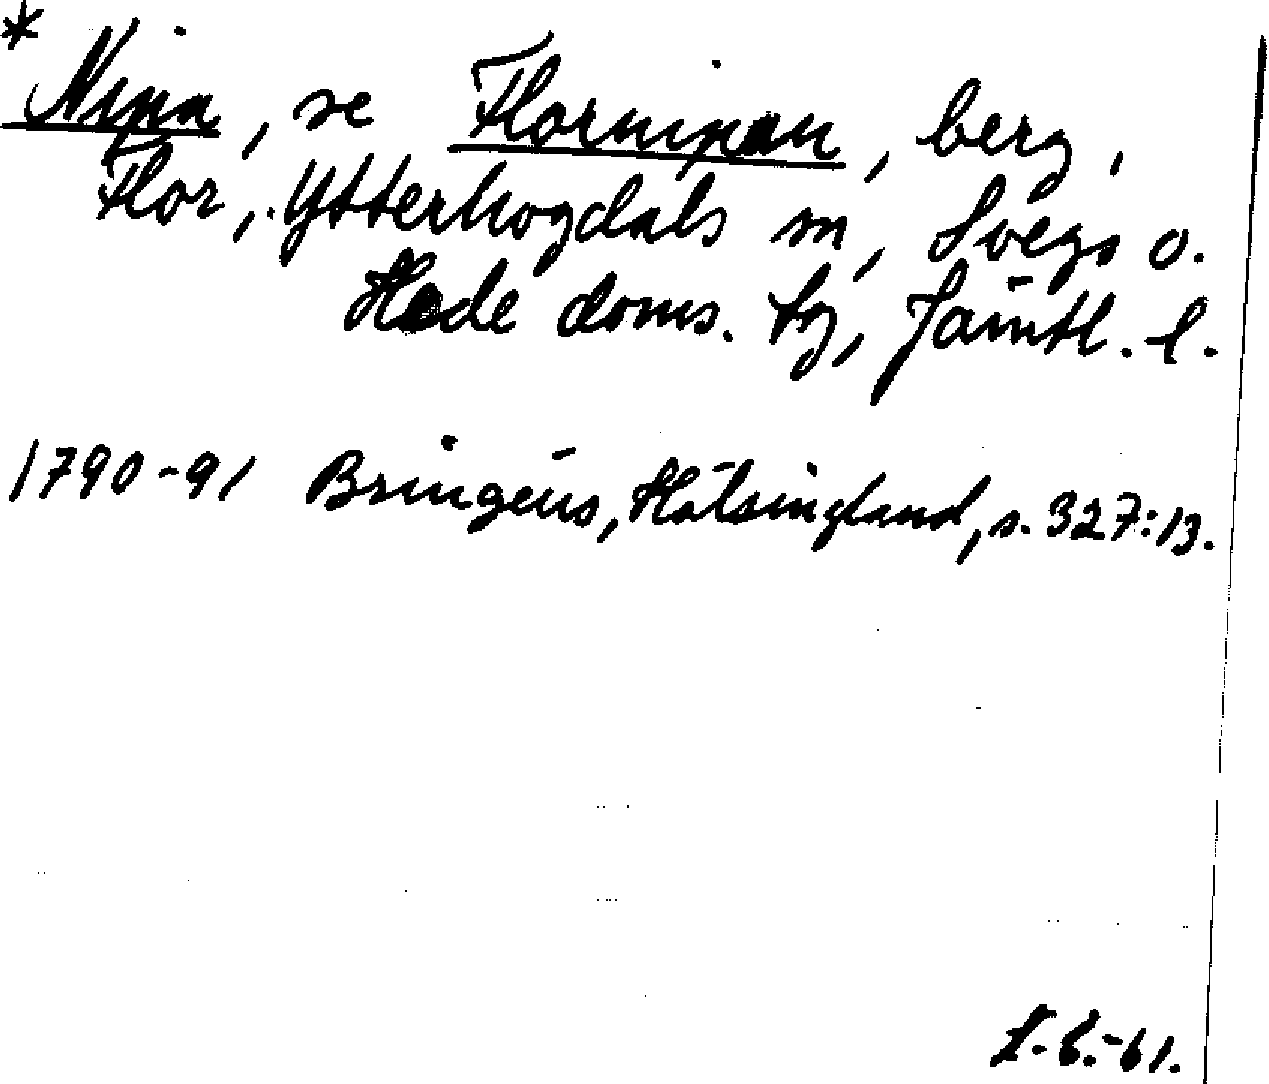 * Nipa, se Flornipan, berg,
Flor, Ytterhogdals sn, Svegs o.
Hede doms. tg, Jämtl. l.
1790-91 Bringéus, Hälsingland, s. 327:13.
L.B.-61.